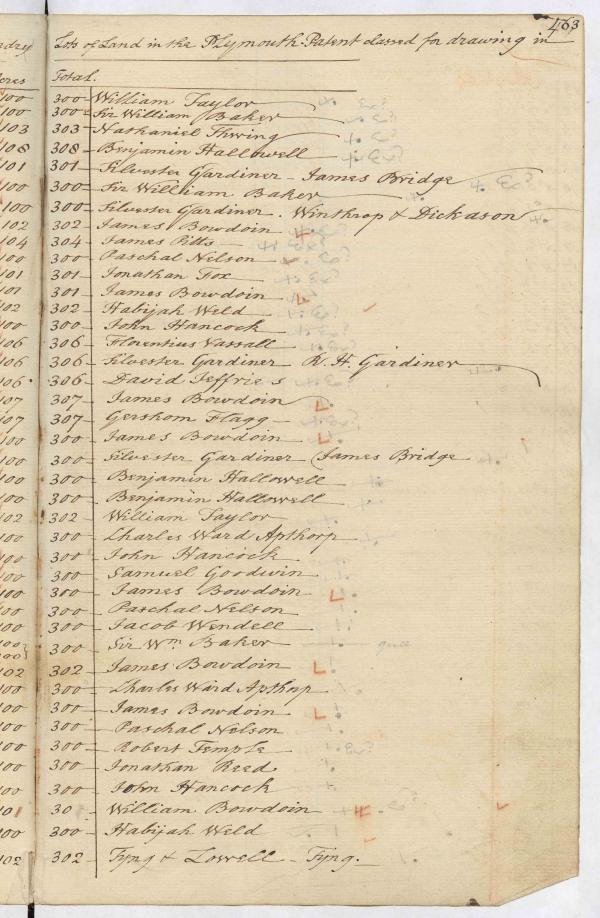 463
Lots of Land in the Plymouth Patent classed for drawing in
Total.
100 300 William Taylor
100 300 Sir William Baker
103 303 Nathaniel Thwing
108 308 Benjamin Hallowell
101 301 Silvester Gardiner - James Bridge
100 300 Sir William Baker
100 300 Silvester Gardiner . Winthrop & Dickason
102 302 James Bowdoin
104 304 James Pitts
100 300 Paschal Nelson
101 301 Jonathan Fox
101 301 James Bowdoin
102 302 Habijah Weld
100 300 John Hancock
106 306 Florentius Vassall
106 306 Silvester Gardiner R. H. Gardiner
106 306 David Jeffries
107 307 James Bowdoin
107 307 Gershom Flagg
100 300 James Bowdoin
100 300 Silvester Gardiner (James Bridge
100 300 Benjamin Hallowell
100 300 Benjamin Hallowell
102 302 William Taylor
100 300 Charles Ward Apthorp
100 300 John Hancock
100 300 Samuel Goodwin
100 300 James Bowdoin
100 300 Paschal Nelson
100 300 Jacob Wendell
300 Sir Wm Baker
102 302 James Bowdoin
100 300 Charles Ward Apthorp
100 300 James Bowdoin
100 300 Paschal Nelson
100 300 Robert Temple
100 300 Jonathan Reed
100 300 John Hancock
101 30 William Bowdoin
100 300 Habijah Weld
102 302 Tyng & Lowell - Tyng.